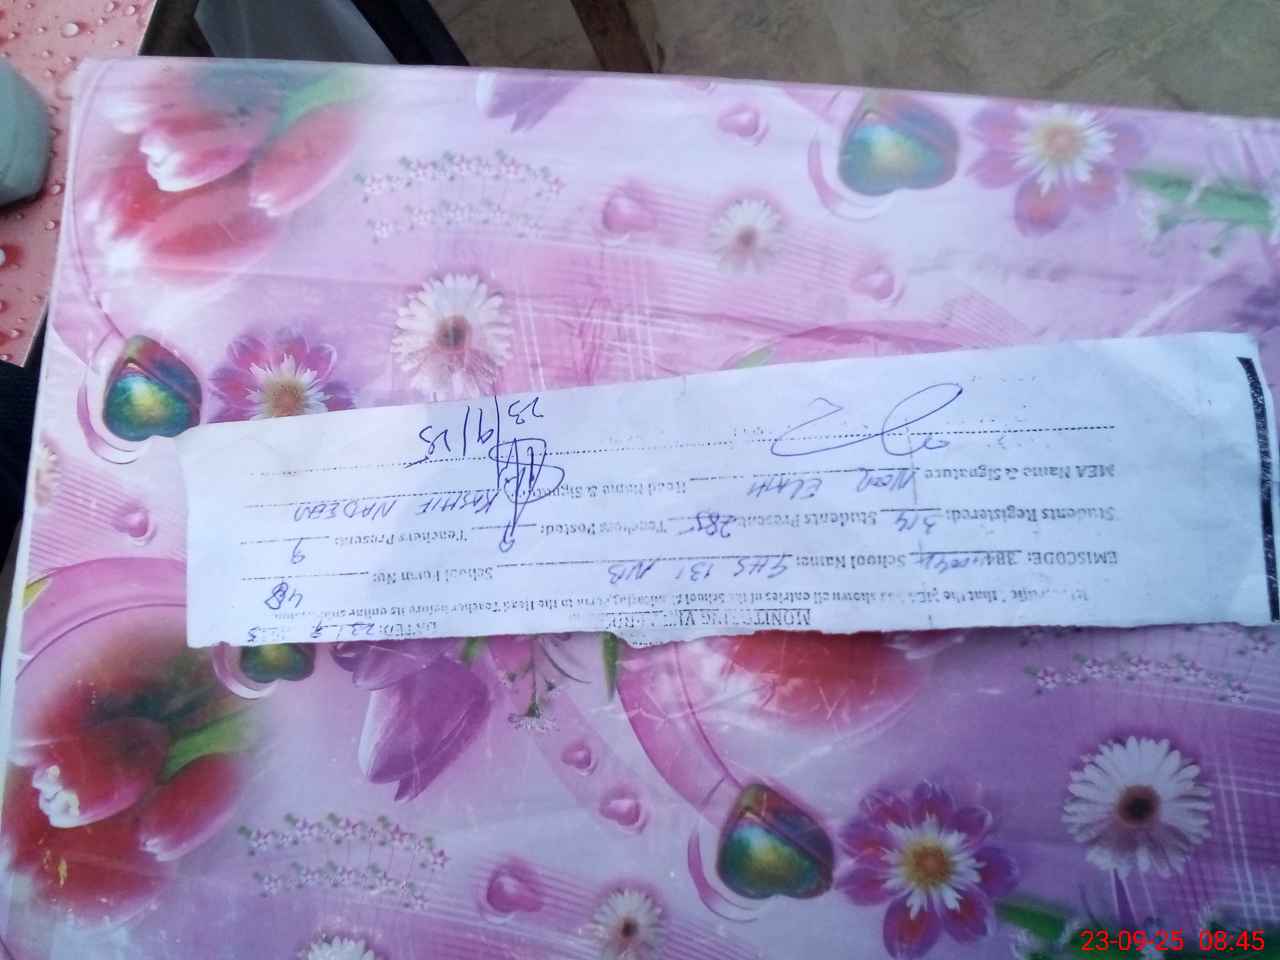 MONITORING VISIT
DATED: 23/9
that the MEA has shown all entries of the School to the Head Teacher before its online submission.
EMISCODE: 384 School Name: GHS 131 NB School Form No: 48
Students Registered: 314 Students Present: 285 Teachers Posted: 9 Teachers Present: 9
MEA Name & Signature NOOR ELAHI Head Name & Signature KASHIF NADEEM
23/9/25
23-09-25 08:45